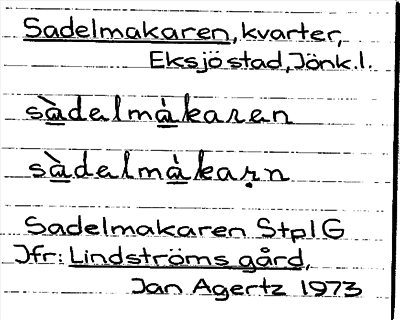 Sadelmakaren, kvarter,
Eksjö stad, Jönk. l.
sàdelmàkaren
sàdelmàkaṛn
Sadelmakaren Stpl G
Jfr: Lindströms gård,
Jan Agertz 1973